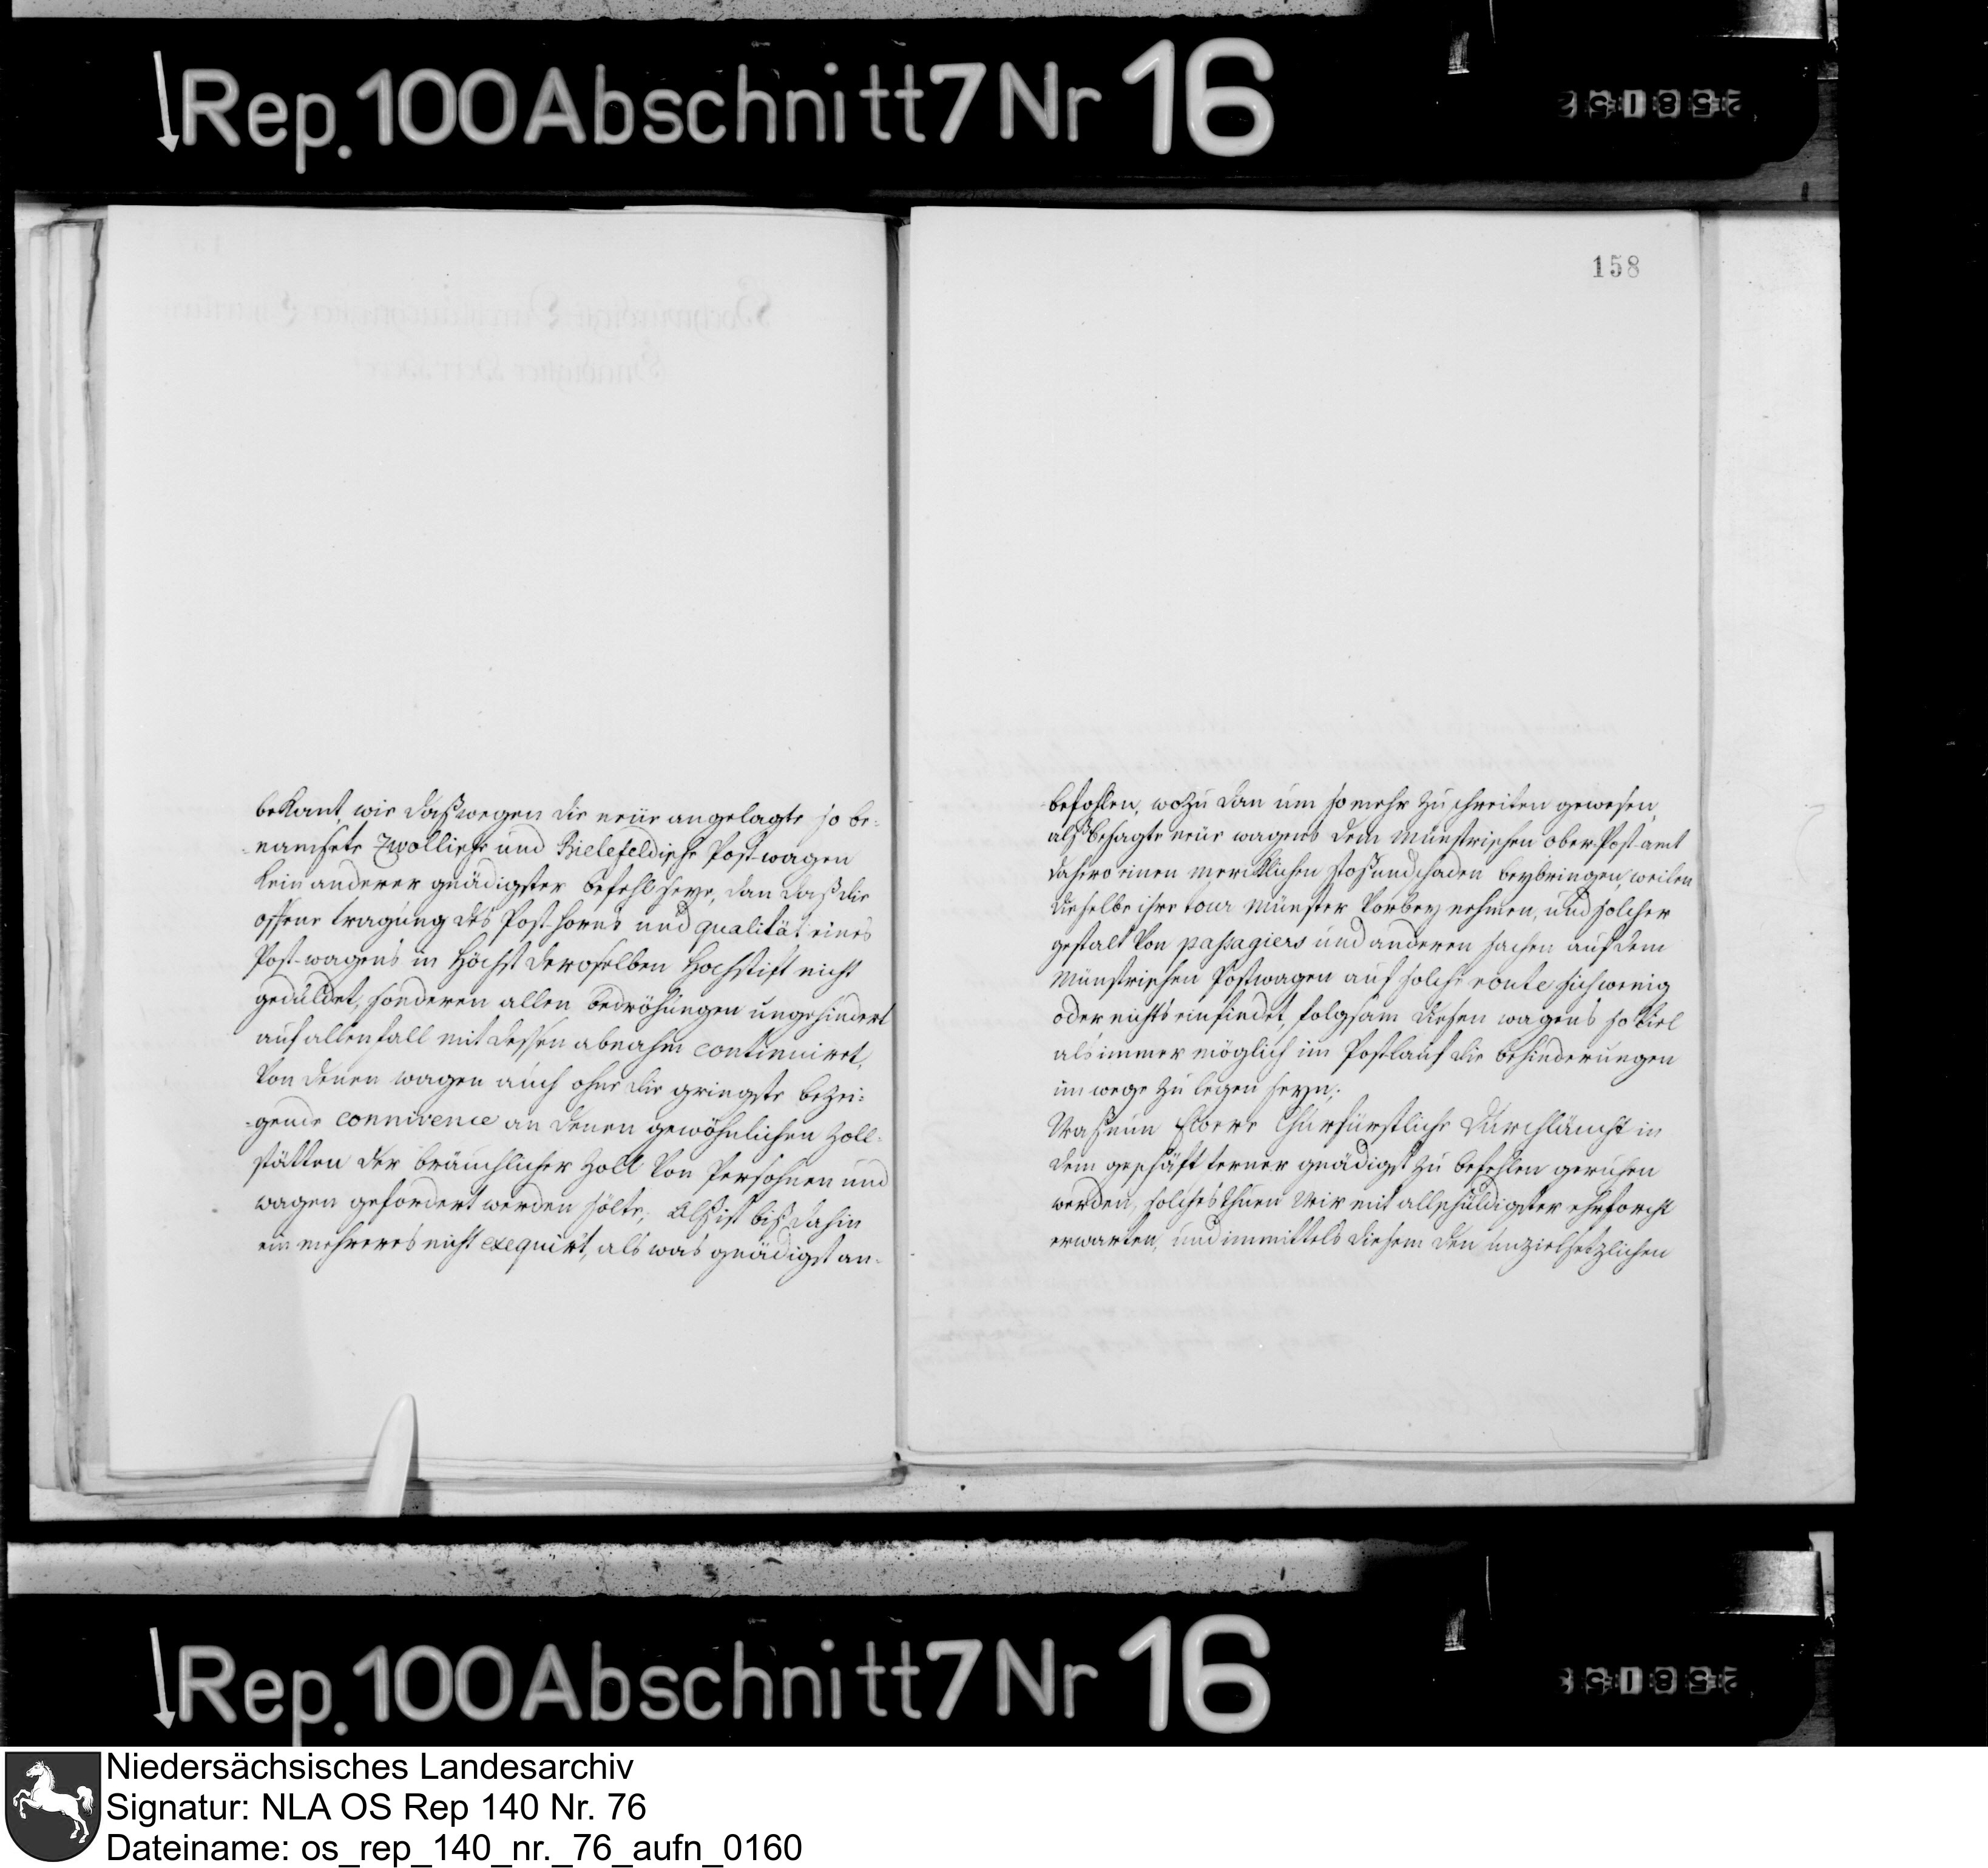 Rep. 100 Abschnitt 7 Nr 16
bekant, wie daß wegen die neüe angelagte so be-
namsete Zwollische und Bielefeldische Post-wagen
kein anderer gnädigster befehl seye, dan daß die
offene tragung des Post-horns und qualität eines
Post-wagens in Höchst deroselben Hochstift nicht
geduldet, sonderen allen bedröhungen ungehindert
auf allenfall mit dessen abnahm continuiret,
Von denen wagen auch ohne die gringste bezei-
gende connivence an denen gewöhnlichen Zoll-
stätten der bräuchlicher Zoll Von Persohnen und
wagen gefordert werden sölte; Alß ist biß dahin
ein mehreres nicht exequirt, als was gnädigst an-
158
befohlen, wozu dan um so mehr zu schreiten gewesen,
alß besagte neüe wagens dem Münstrischen ober Post-amt
dahero einen mercklichen stoß und schaden beybringen, weilen
dieselbe ihre tour Münster Vorbey nehmen, und solcher
gestalt Von passagiers und anderen sachen auf dem
Münstrischen Postwagen auf solche route sich wenig
oder nichts einfindet, folgsam diesen wagens so Viel
als immer möglich im Postlauf die behinderungen
im wege zu legen seyn;
Waß nun Ewere Churfürstliche Dürchläucht in
dem geschäft ferner gnädigst zu befehlen geruhen
werden, solches thuen Wir mit allschuldigster ehrforcht
erwarten, und immittels diesem den unzielsetzlichen
Rep. 100 Abschnitt 7 Nr 16
Niedersächsisches Landesarchiv
Signatur: NLA OS Rep 140 Nr. 76
Dateiname: os_rep_140_nr._76_aufn_0160